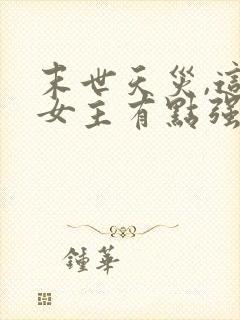 末世天災,這
女主有點强
鍾華